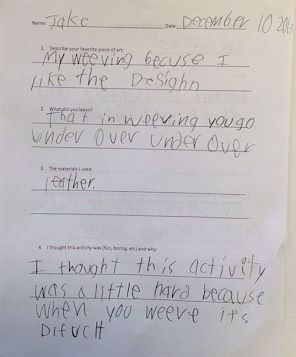 Name: Jake Date: December 10 2013
1. Describe your favorite piece of art:
My weeving becuse I
like the Desighn
2. What did you learn?
That in weeving you go
under over under over
3. The materials I used:
leather.
4. I thought this activity was (fun, boring, etc) and why:
I thought this activity
was a little hard because
when you weeve it's
Difuclt